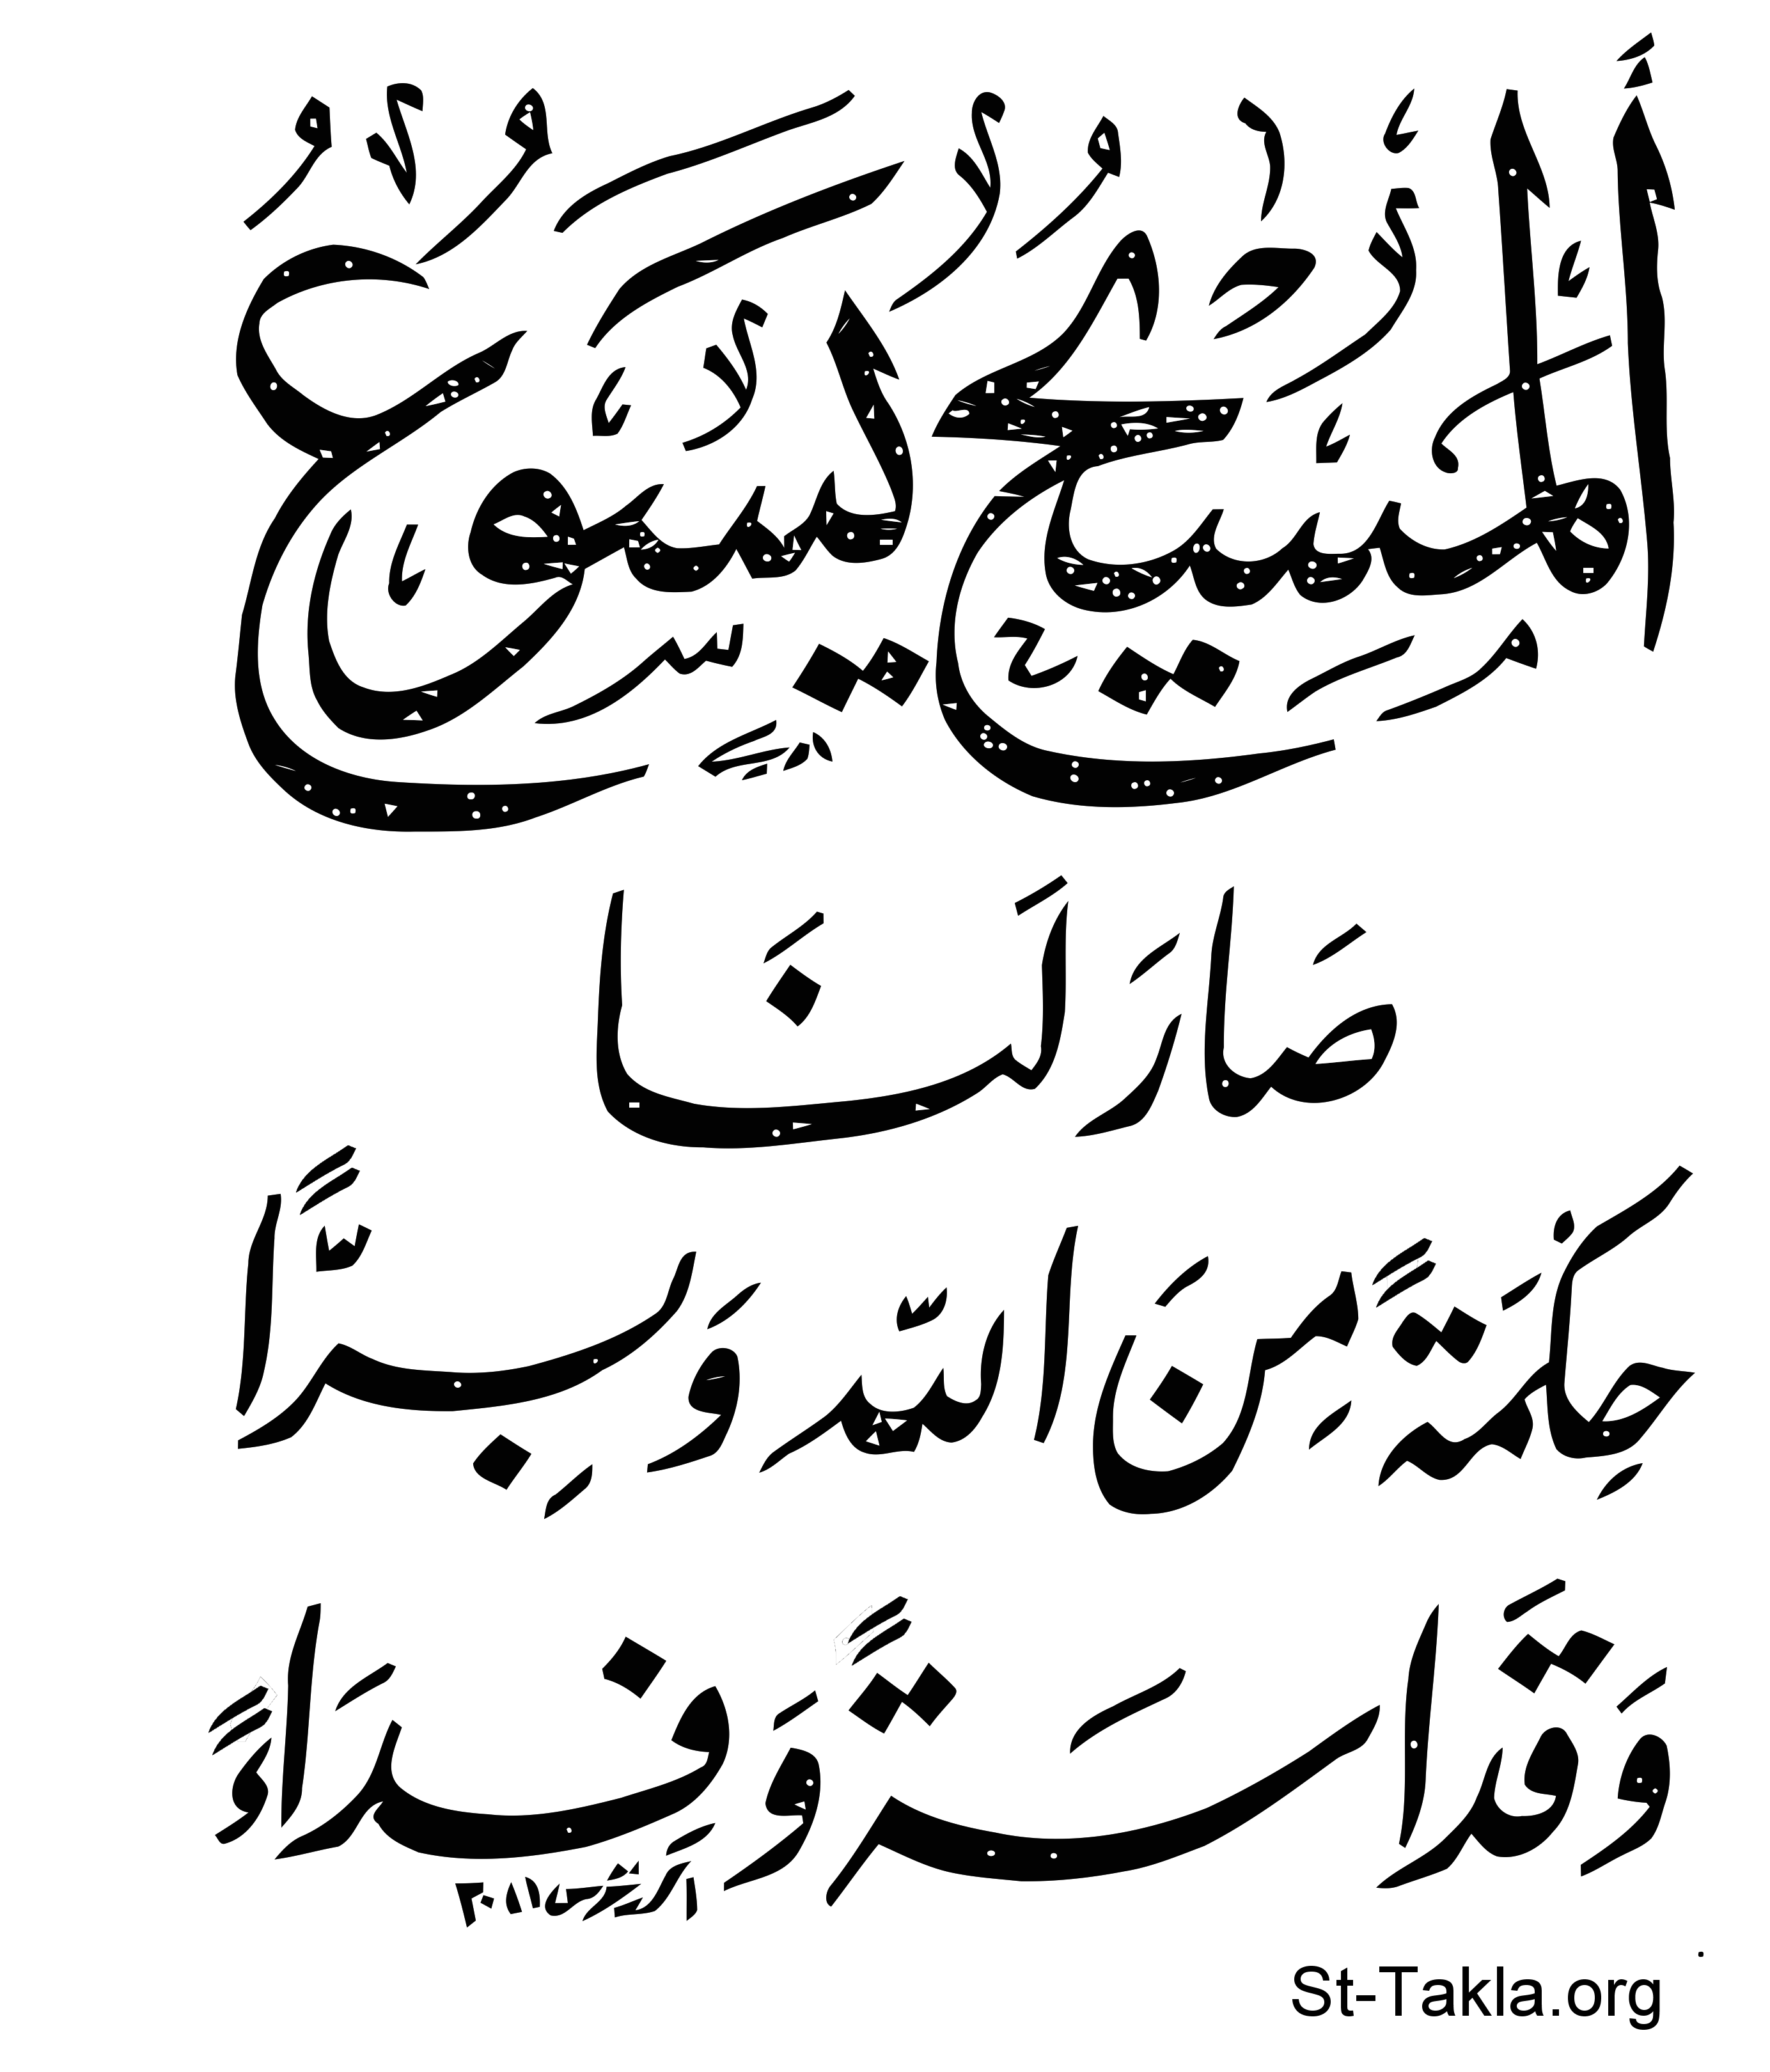 أَلْمَسِيحُ يَسُوعُ
صَارَ لَنَا
حِكْمَةً مِنَ اللّهِ وَبِرًّا
وَقَدَاسَةً وَفِدَاءً
St-Takla.org